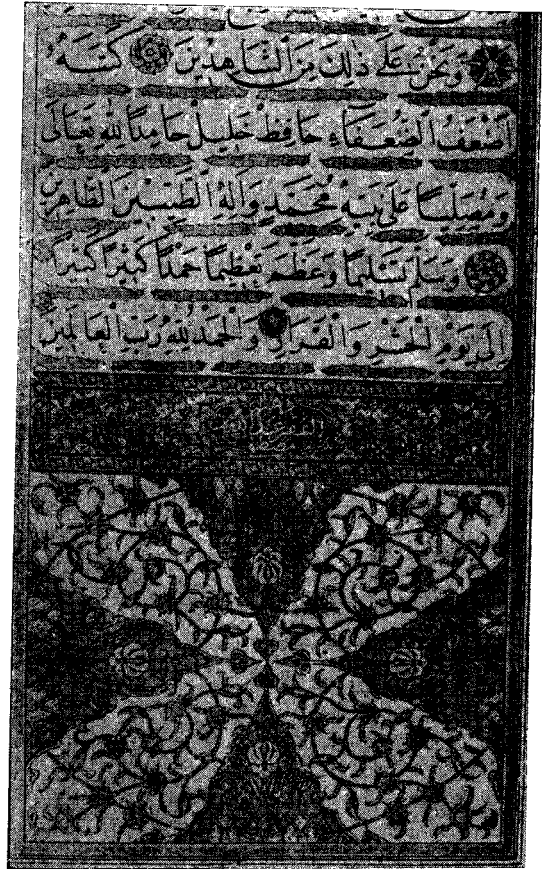 وَنَحْنُ عَلَى ذٰلِكَ مِنَ الشَّاهِدِينَ كَتَبَهُ
اَضْعَفُ الضُّعَفَاءِ حَافِظْ خَلِيلْ حَامِدًا لِلّٰهِ تَعَالَى
وَمُصَلِّيًا عَلَى نَبِيِّهِ مُحَمَّدٍ وَاٰلِهِ الطَّيِّبِينَ الطَّاهِرِينَ
وَسَلَّمَ تَسْلِيمًا وَعَظَّمَ تَعْظِيمًا حَمْدًا كَثِيرًا كَثِيرًا
اِلَى يَوْمِ الْحَشْرِ وَالْقَرَارِ وَالْحَمْدُ لِلّٰهِ رَبِّ الْعَالَمِينَ